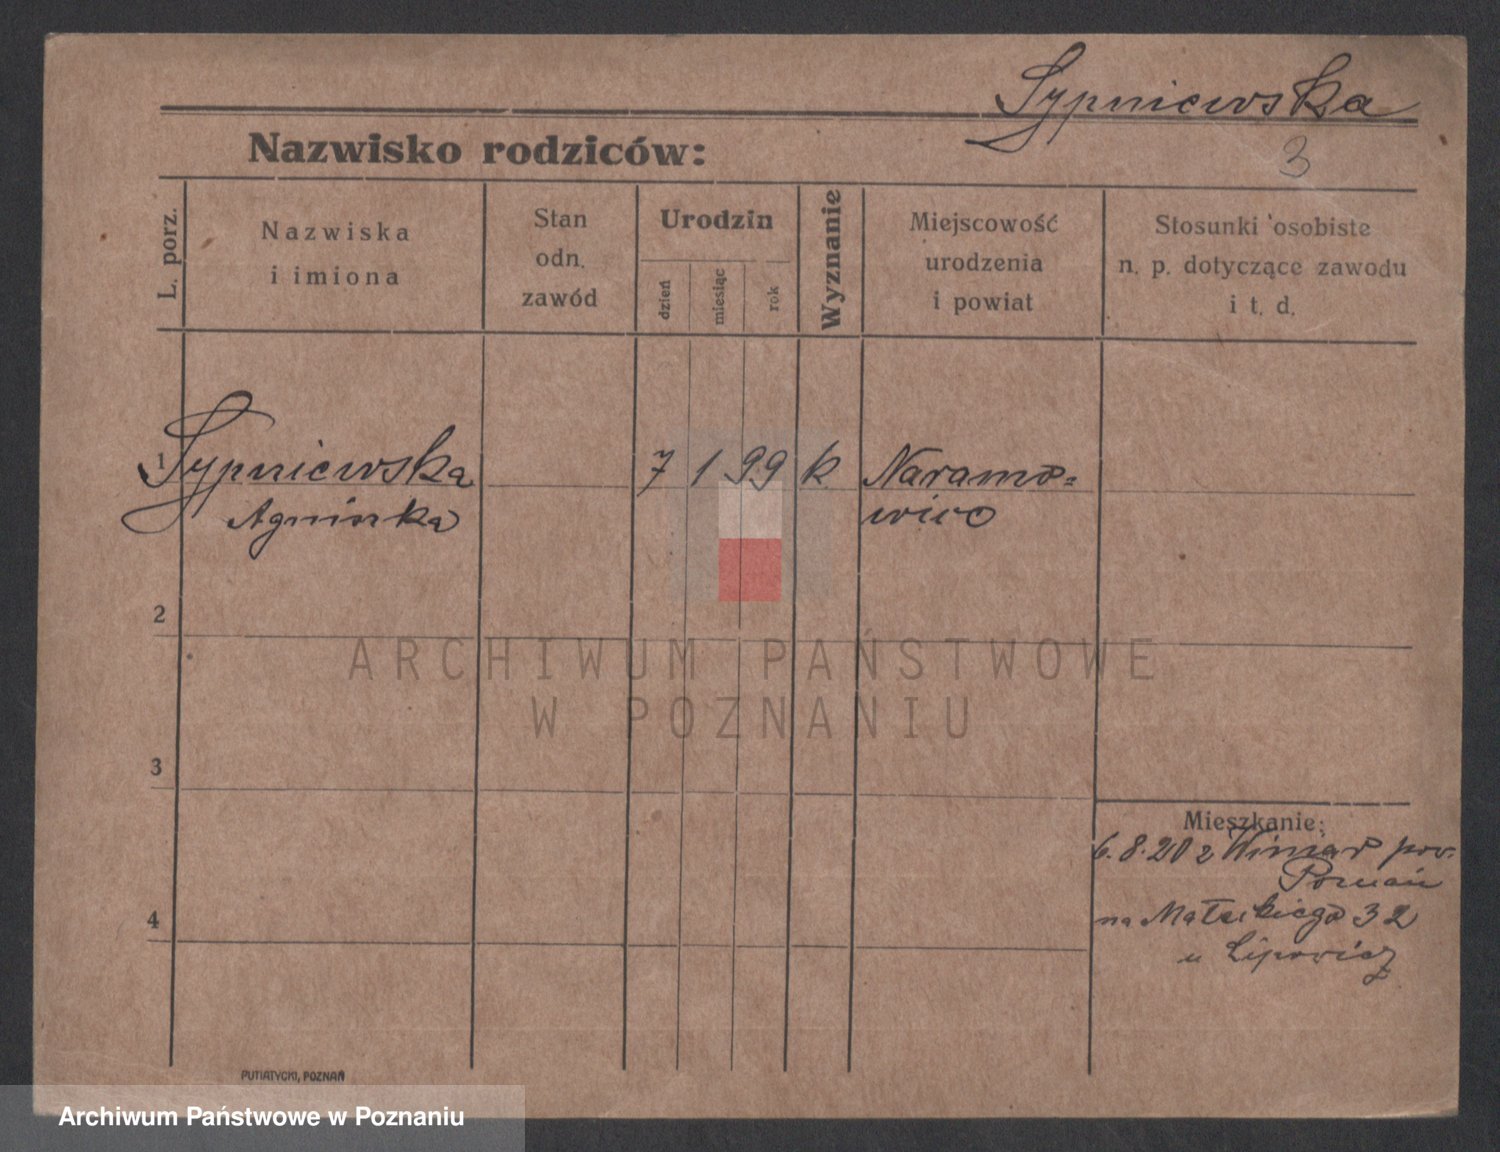 Sypniewska
3
Nazwisko rodziców:
L. porz.
Nazwiska
i imiona
Stan
odn.
zawód
Urodzin
dzień
miesiąc
rok
Wyznanie
Miejscowość
urodzenia
i powiat
Stosunki osobiste
n. p. dotyczące zawodu
i t. d.
1
Sypniewska 7 1 99 k Naramo=
Agnieszka wice
2
ARCHIWUM PAŃSTWOWE
W POZNANIU
3
Mieszkanie:
6.8.20 z Winiar pow.
Poznań
na Małeckiego 32
u Lipowicz
4
PUTIATYCKI, POZNAŃ
Archiwum Państwowe w Poznaniu